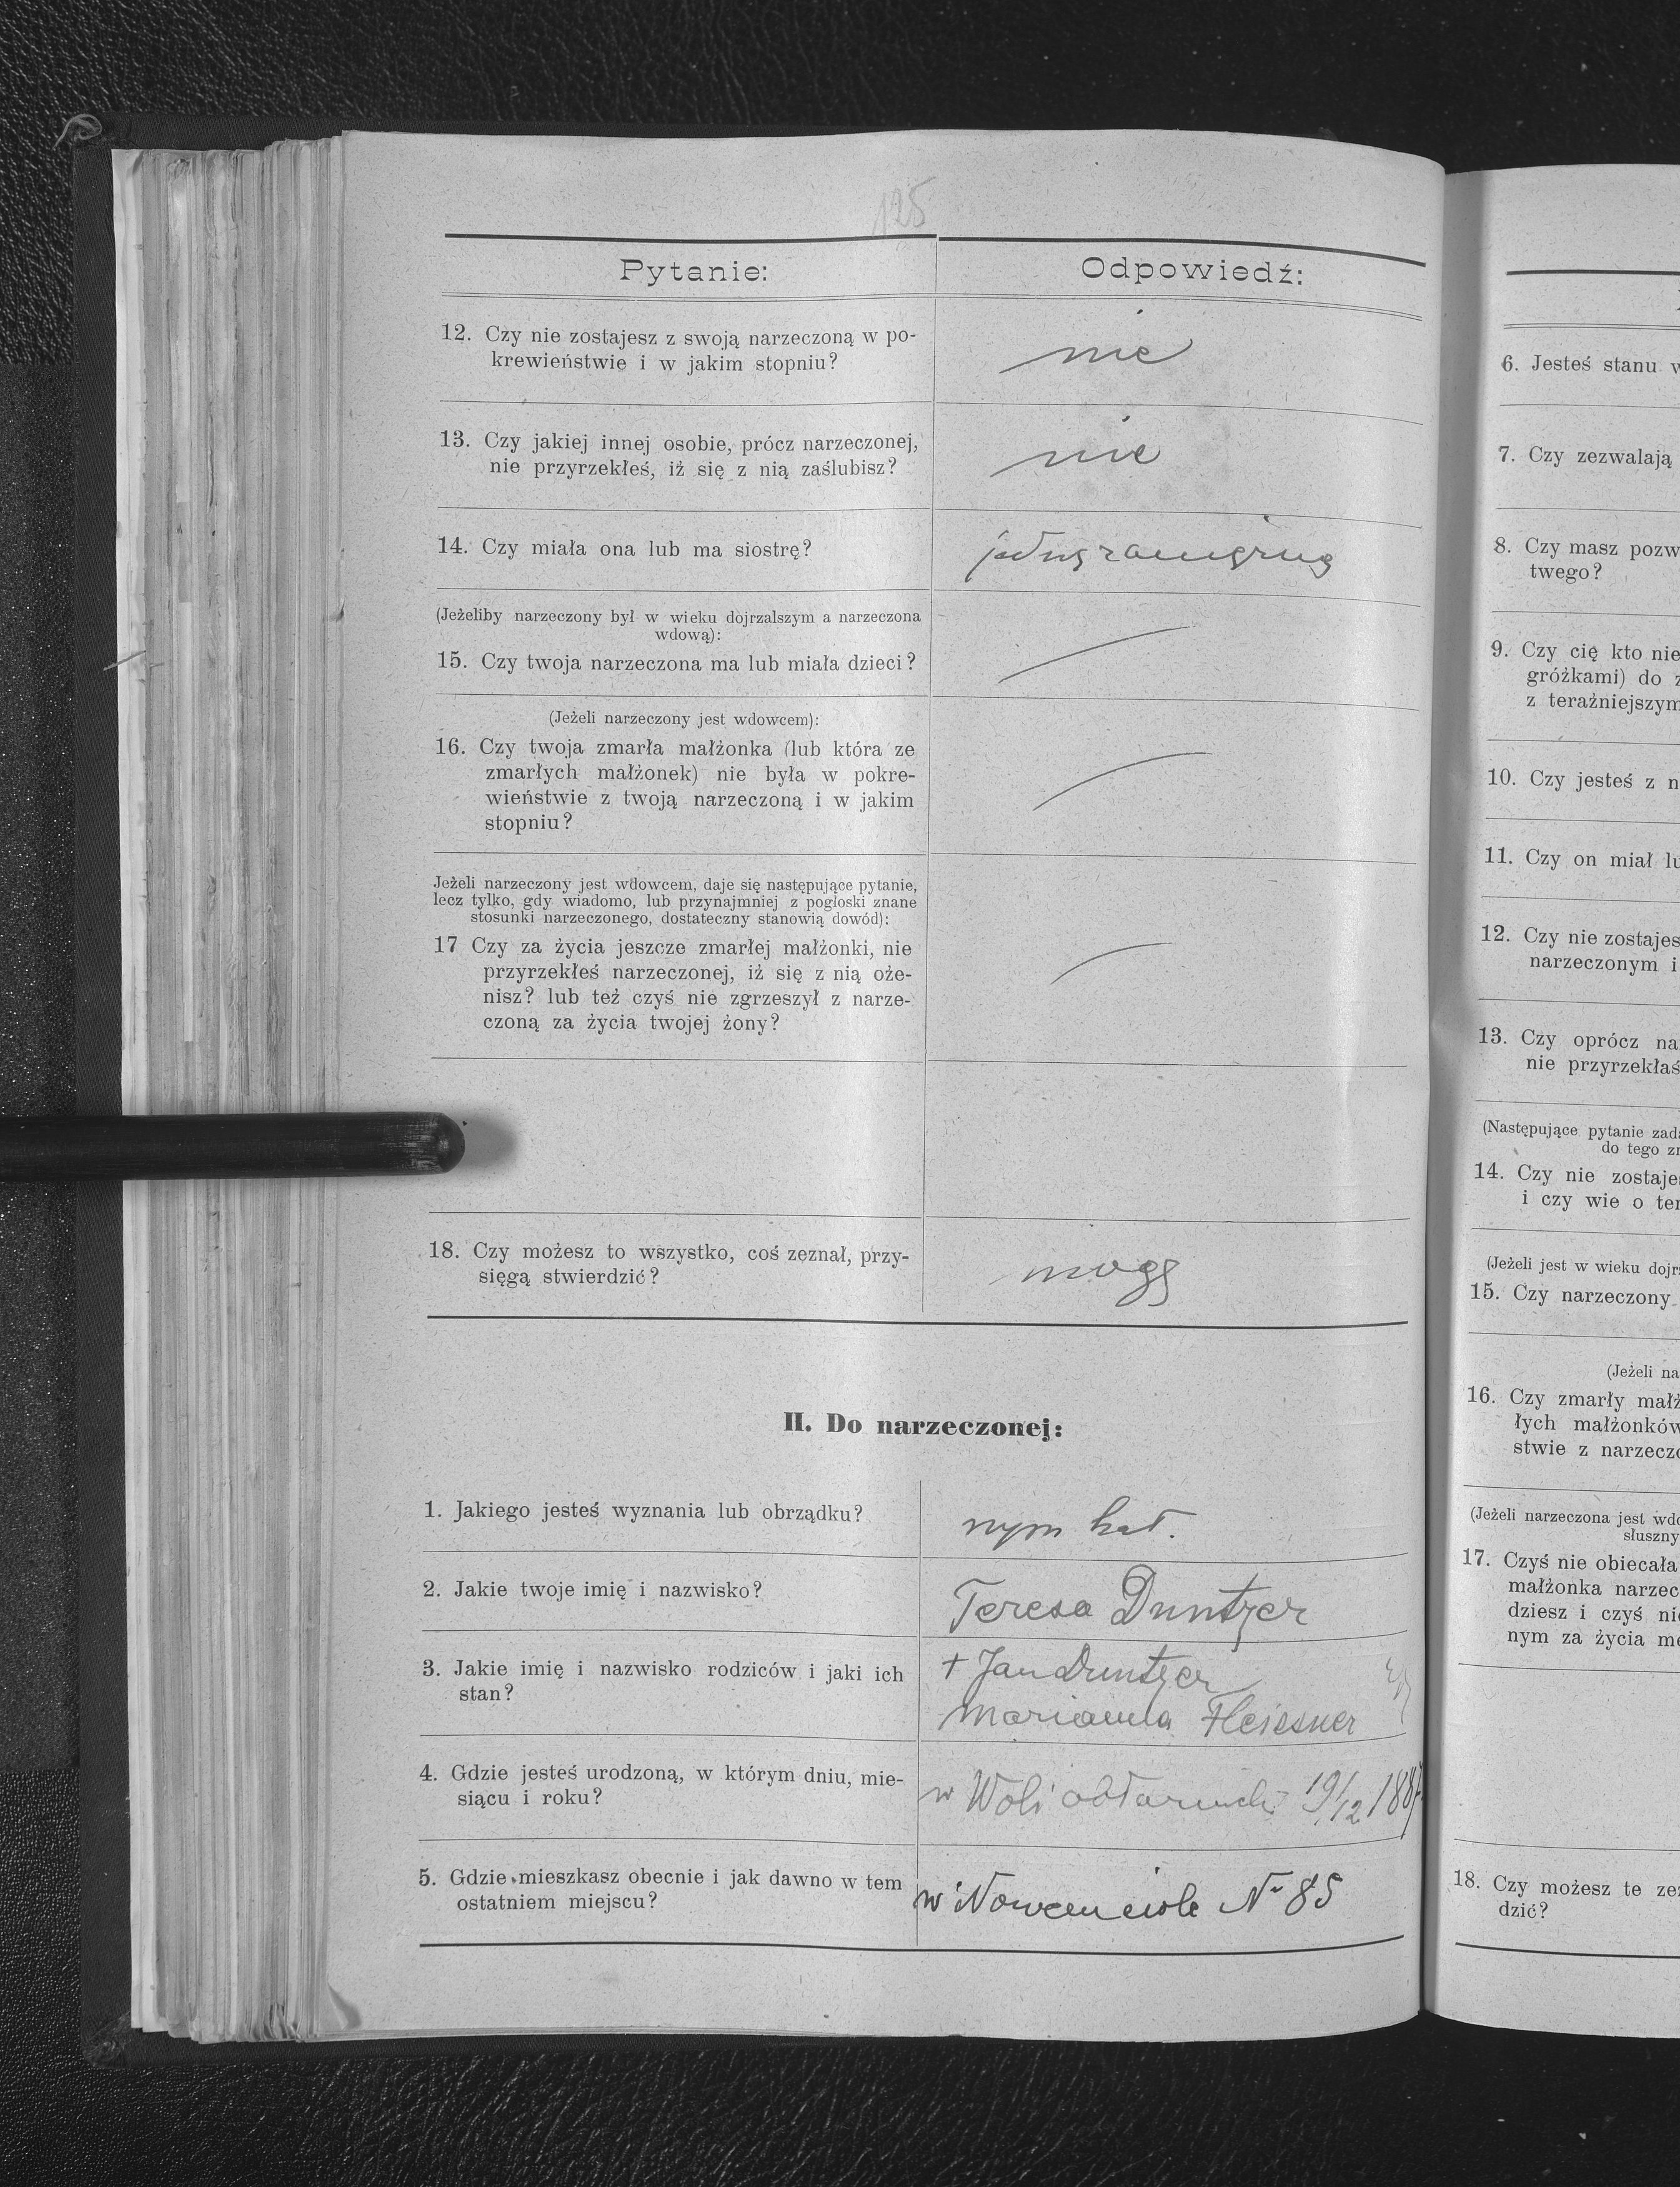 125
Pytanie:
Odpowiedź:
12. Czy nie zostajesz z swoją narzeczoną w po-
krewieństwie i w jakim stopniu?
nie
13. Czy jakiej innej osobie, prócz narzeczonej,
nie przyrzekłeś, iż się z nią zaślubisz?
nie
14. Czy miała ona lub ma siostrę?
jedną zamężną
(Jeżeliby narzeczony był w wieku dojrzalszym a narzeczona
wdową):
15. Czy twoja narzeczona ma lub miała dzieci?
(Jeżeli narzeczony jest wdowcem):
16. Czy twoja zmarła małżonka (lub która ze
zmarłych małżonek) nie była w pokre-
wieństwie z twoją narzeczoną i w jakim
stopniu?
Jeżeli narzeczony jest wdowcem, daje się następujące pytanie,
lecz tylko, gdy wiadomo, lub przynajmniej z pogłoski znane
stosunki narzeczonego, dostateczny stanowią dowód):
17 Czy za życia jeszcze zmarłej małżonki, nie
przyrzekłeś narzeczonej, iż się z nią oże-
nisz? lub też czyś nie zgrzeszył z narze-
czoną za życia twojej żony?
18. Czy możesz to wszystko, coś zeznał, przy-
sięgą stwierdzić?
mogę
II. Do narzeczonej:
1. Jakiego jesteś wyznania lub obrządku?
rzym kat.
2. Jakie twoje imię i nazwisko?
Teresa Duntzer
3. Jakie imię i nazwisko rodziców i jaki ich
stan?
+ Jan Duntzer
Marianna Fleissner
4. Gdzie jesteś urodzoną, w którym dniu, mie-
siącu i roku?
w Woli 19/12
5. Gdzie mieszkasz obecnie i jak dawno w tem
ostatniem miejscu?
w Nowem siole Nr 85
6. Jesteś stanu
7. Czy zezwalają
8. Czy masz pozw
twego?
9. Czy cię kto nie
gróżkami) do
z teraźniejszym
10. Czy jesteś z n
11. Czy on miał lu
12. Czy nie zostajes
narzeczonym i
13. Czy oprócz na
nie przyrzekłaś
(Następujące pytanie zada
do tego zn
14. Czy nie zostaje
i czy wie o ter
(Jeżeli jest w wieku dojr
15. Czy narzeczony
(Jeżeli na
16. Czy zmarły małż
łych małżonków
stwie z narzecz
(Jeżeli narzeczona jest wdo
słuszny
17. Czyś nie obiecała
małżonka narzec
dziesz i czyś ni
nym za życia m
18. Czy możesz te ze
dzić?